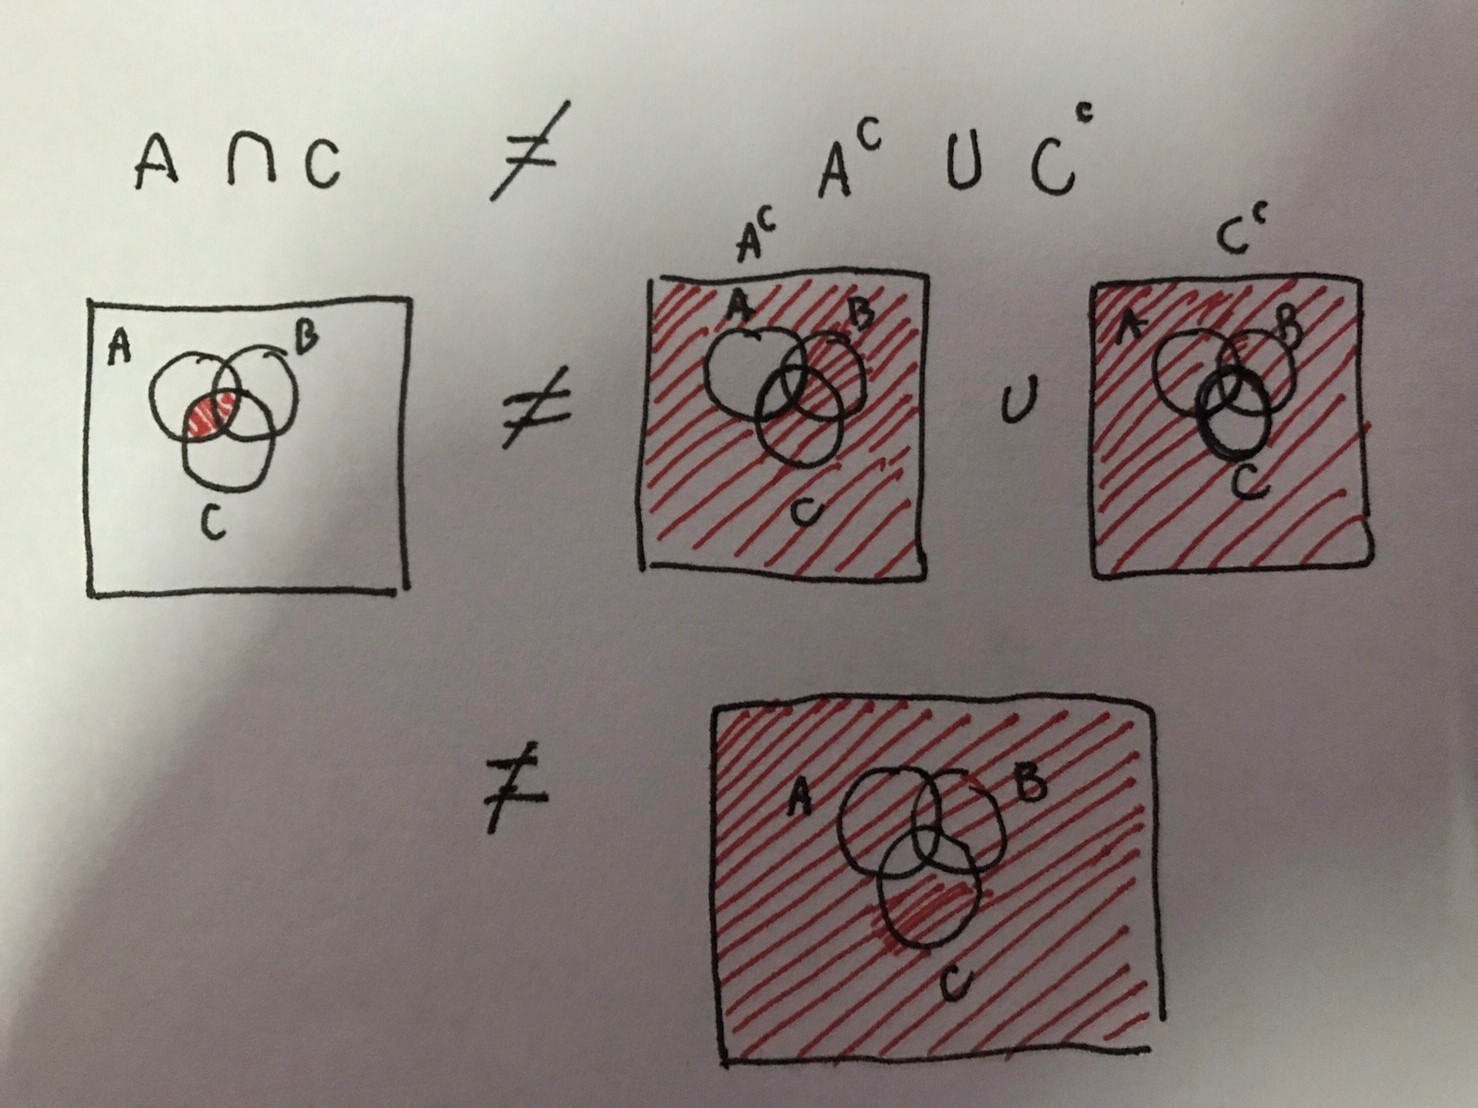 A ∩ C ≠ Aᶜ ∪ Cᶜ
Aᶜ Cᶜ
A B ≠ A B ∪ A B
C C C
≠ A B
C